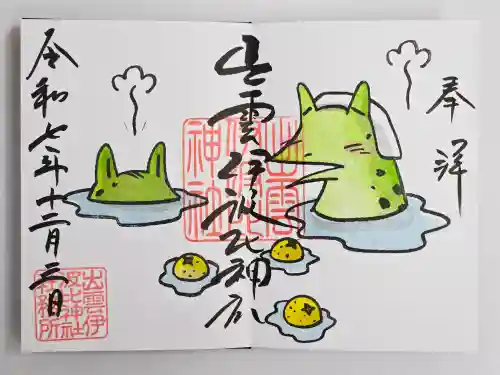 奉拝
出雲伊波比神社
令和七年十二月三日
出雲
伊波比
神社
出雲伊
波比神社
社務所